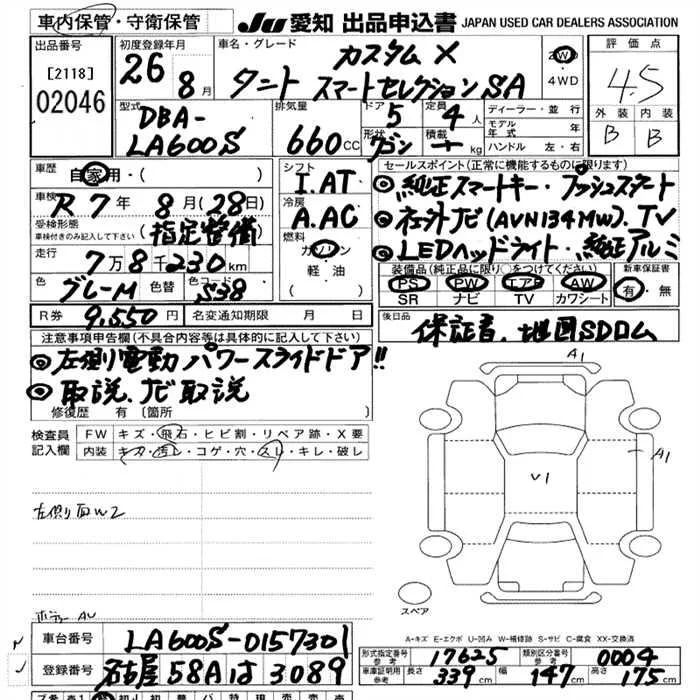 車内保管・守衛保管
JU 愛知 出品申込書 JAPAN USED CAR DEALERS ASSOCIATION
出品番号
[2118]
02046
初度登録年月
26年 8月
車名・グレード
カスタムX
タント スマートセレクションSA
2WD
4WD
評価点
4.5
外装 内装
B B
型式
DBA-
LA600S
排気量
660cc
ドア
5
形状
ワゴン
定員
4人
積載
kg
ディーラー・並行
モデル年式 年
ハンドル 左・右
車歴
自家用・( )
車検
R7年 8月(28日)
受検形態
車検付きのみ記入して下さい
(指定整備)
走行
7万8千230km
色
グレーM
色替
色コード
S38
シフト
I.AT
冷房
A.AC
燃料
ガソリン
軽油
セールスポイント(正常に機能するものに限ります)
◎純正スマートキー・プッシュスタート
◎社外ナビ(AVN134MW).TV
◎LEDヘッドライト・純正アルミ
装備品(純正品に限り○をつけてください)
PS PW エアB AW
SR ナビ TV カワシート
新車保証書
有・無
R券 9,550円
名変通知期限 月 日
後日品
保証書、地図SDロム
注意事項申告欄(不具合内容等は具体的に記入して下さい)
◎左側電動パワースライドドア!!
◎取説、ナビ取説
修復歴 有 〔箇所
検査員記入欄
FW キズ・飛石・ヒビ割・リペア跡・X要
内装 キズ・汚レ・コゲ・穴・スレ・キレ・破レ
左側面W2
A1
A1
V1
スペア
A-キズ E-エクボ U-凹み W-補修跡 S-サビ C-腐食 XX-交換済
車台番号
LA600S-0157301
登録番号
名古屋 58A は 3089
形式指定番号
参考
17625
類別区分番号
参考
0004
車庫証明用
参考
長さ 339cm
幅 147cm
高さ 175cm